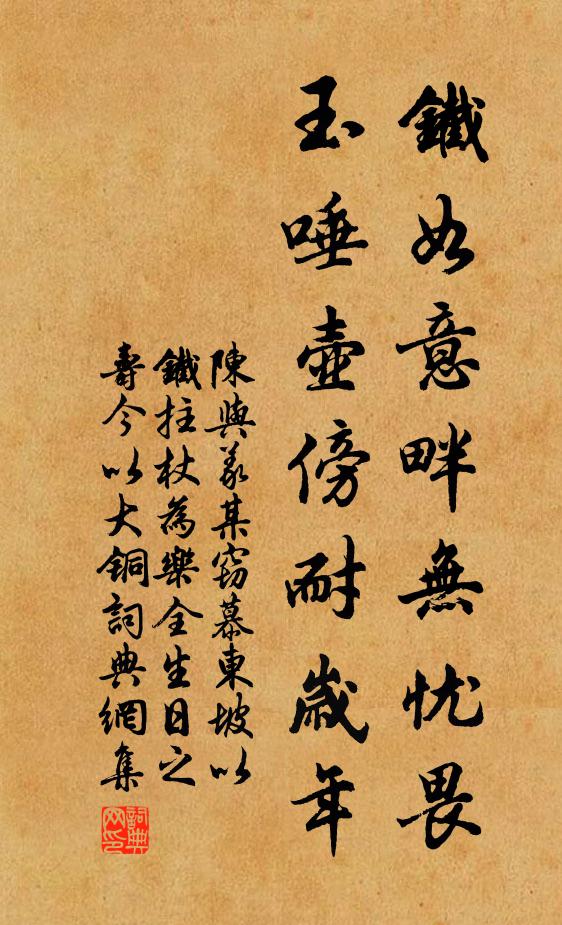 鐵如意畔無忧畏
玉唾壺傍耐歲年
陳與義某窃慕東坡以
鐵拄杖為樂全生日之
壽今以大铜詞典網集
詞典网印